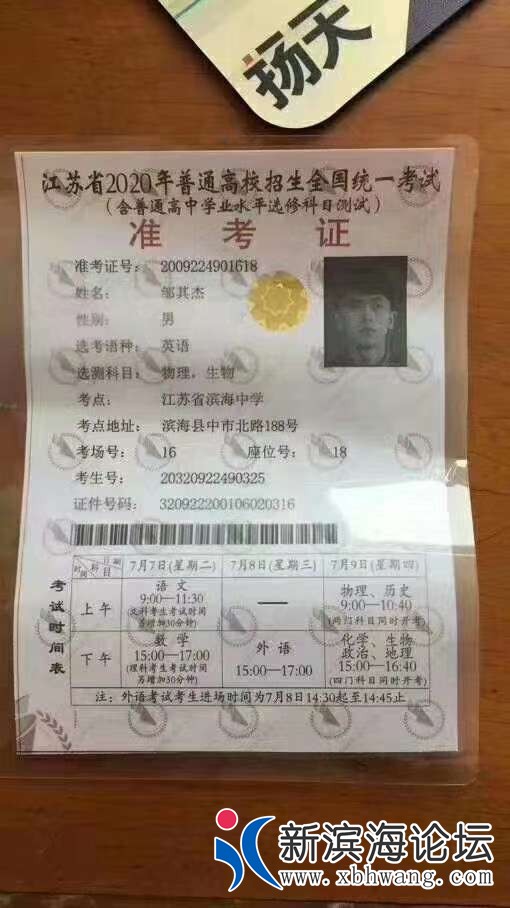 扬天
江苏省2020年普通高校招生全国统一考试
(含普通高中学业水平选修科目测试)
准考证
准考证号: 2009224901618
姓名: 邹其杰
性别: 男
选考语种: 英语
选测科目: 物理, 生物
考点: 江苏省滨海中学
考点地址: 滨海县中市北路188号
考场号: 16 座位号: 18
考生号: 20320922490325
证件号码: 320922200106020316
考试时间表
时间 科目 日期 7月7日(星期二) 7月8日(星期三) 7月9日(星期四)
上午
语文
9:00—11:30
(文科考生考试时间
另增加30分钟)
—
物理、历史
9:00—10:40
(两门科目同时开考)
下午
数学
15:00—17:00
(理科考生考试时间
另增加30分钟)
外语
15:00—17:00
化学、生物
政治、地理
15:00—16:40
(四门科目同时开考)
注: 外语考试考生进场时间为7月8日14:30起至14:45止
新滨海论坛
www.xbhwang.com